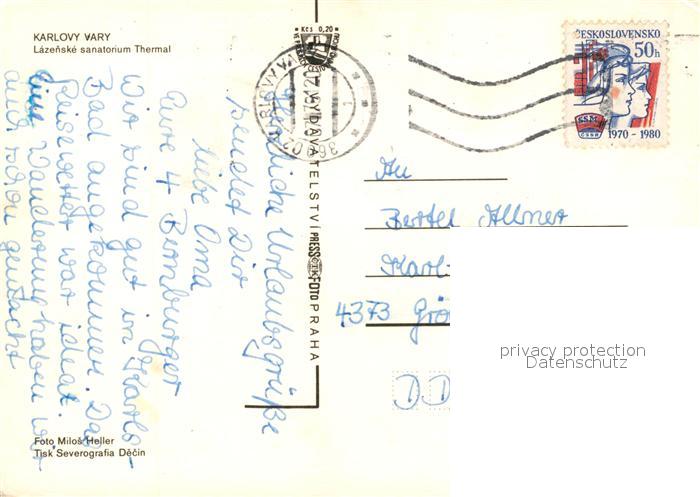 KARLOVY VARY
Lázeňské sanatorium Thermal
Kčs 0,20
ČESKOSLOVENSKO
50h
SSM
ČSSR
1970 - 1980
VYDAVATELSTVÍ PRESSFOTO PRAHA
Urlaubsgrüße
sendet Dir
liebe Oma
Eure 4 Bernburger
Wir sind gut in Karls-
Bad angekommen. Das
Reisewetter war ideal.
Eine Wanderung haben wir
auch schon gemacht
An
Bertel
Karl-
4373 Grö
DD
privacy protection
Datenschutz
Foto Miloš Heller
Tisk Severografia Děčín